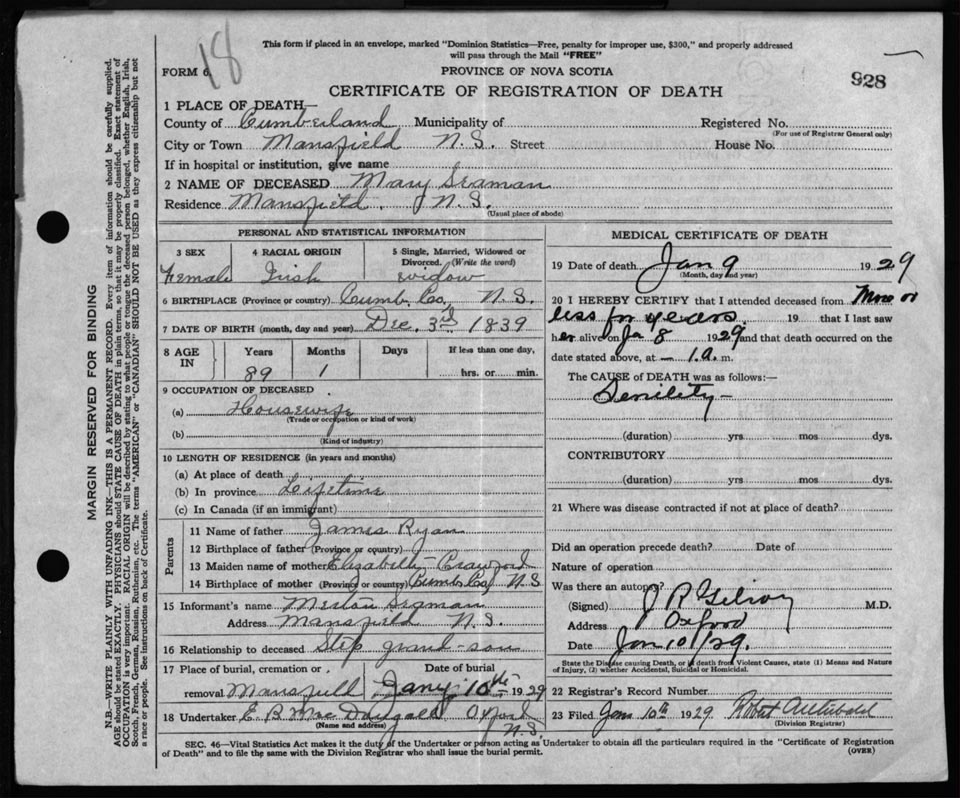 18
This form if placed in an envelope, marked "Dominion Statistics—Free, penalty for improper use, $300," and properly addressed
will pass through the Mail "FREE"
FORM 6.
PROVINCE OF NOVA SCOTIA
928
CERTIFICATE OF REGISTRATION OF DEATH
1 PLACE OF DEATH—
County of Cumberland Municipality of Registered No.
(For use of Registrar General only)
City or Town Mansfield N.S. Street House No.
If in hospital or institution, give name
2 NAME OF DECEASED Mary Seaman
Residence Mansfield. N.S.
(Usual place of abode)
PERSONAL AND STATISTICAL INFORMATION
3 SEX 4 RACIAL ORIGIN 5 Single, Married, Widowed or
Divorced. (Write the word)
Female Irish widow
6 BIRTHPLACE (Province or country) Cumb. Co., N.S.
7 DATE OF BIRTH (month, day and year) Dec. 3rd 1839
8 AGE IN Years Months Days If less than one day,
89 1 hrs. or min.
9 OCCUPATION OF DECEASED
(a) Housewife
(Trade or occupation or kind of work)
(b)
(Kind of industry)
10 LENGTH OF RESIDENCE (in years and months)
(a) At place of death
(b) In province Lifetime
(c) In Canada (if an immigrant)
Parents
11 Name of father James Ryan
12 Birthplace of father (Province or country)
13 Maiden name of mother Elizabeth Crawford
14 Birthplace of mother (Province or country) Cumb Co, N.S
15 Informant's name Seaman
Address Mansfield N.S.
16 Relationship to deceased Step grand-son
17 Place of burial, cremation or Date of burial
removal Mansfield Jany 10th 1929
18 Undertaker E. B. MacDougall Oxford
(Name and address) N.S.
MEDICAL CERTIFICATE OF DEATH
19 Date of death Jan 9 1929
(Month, day and year)
20 I HEREBY CERTIFY that I attended deceased from More or
less for years, 19 that I last saw
her alive on Ja 8 1929 and that death occurred on the
date stated above, at — 1. a. m.
The CAUSE of DEATH was as follows:—
Senility —
(duration) yrs. mos dys.
CONTRIBUTORY
(duration) yrs. mos. dys.
21 Where was disease contracted if not at place of death?
Did an operation precede death? Date of
Nature of operation
Was there an autopsy?
(Signed) J R Gilroy M.D.
Address Oxford
Date Jan 10/29.
State the Disease causing Death, or in death from Violent Causes, state (1) Means and Nature
of Injury, (2) whether Accidental, Suicidal or Homicidal.
22 Registrar's Record Number
23 Filed Jan 10th 1929 Robert Archibald
(Division Registrar)
SEC. 46—Vital Statistics Act makes it the duty of the Undertaker or person acting as Undertaker to obtain all the particulars required in the "Certificate of Registration
of Death" and to file the same with the Division Registrar who shall issue the burial permit.
(OVER)
MARGIN RESERVED FOR BINDING
N.B.—WRITE PLAINLY WITH UNFADING INK—THIS IS A PERMANENT RECORD. Every item of information should be carefully supplied.
AGE should be stated EXACTLY. PHYSICIANS should STATE CAUSE OF DEATH in plain terms, so that it may be properly classified. Exact statement of
OCCUPATION is very important. RACIAL ORIGIN will be described by stating to what people or tongue the deceased person belonged, whether English, Irish,
Scotch, French, German, Russian, Ruthenian, etc. The terms "AMERICAN" or "CANADIAN" SHOULD NOT BE USED as they express citizenship but not
a race or people. See instructions on back of Certificate.